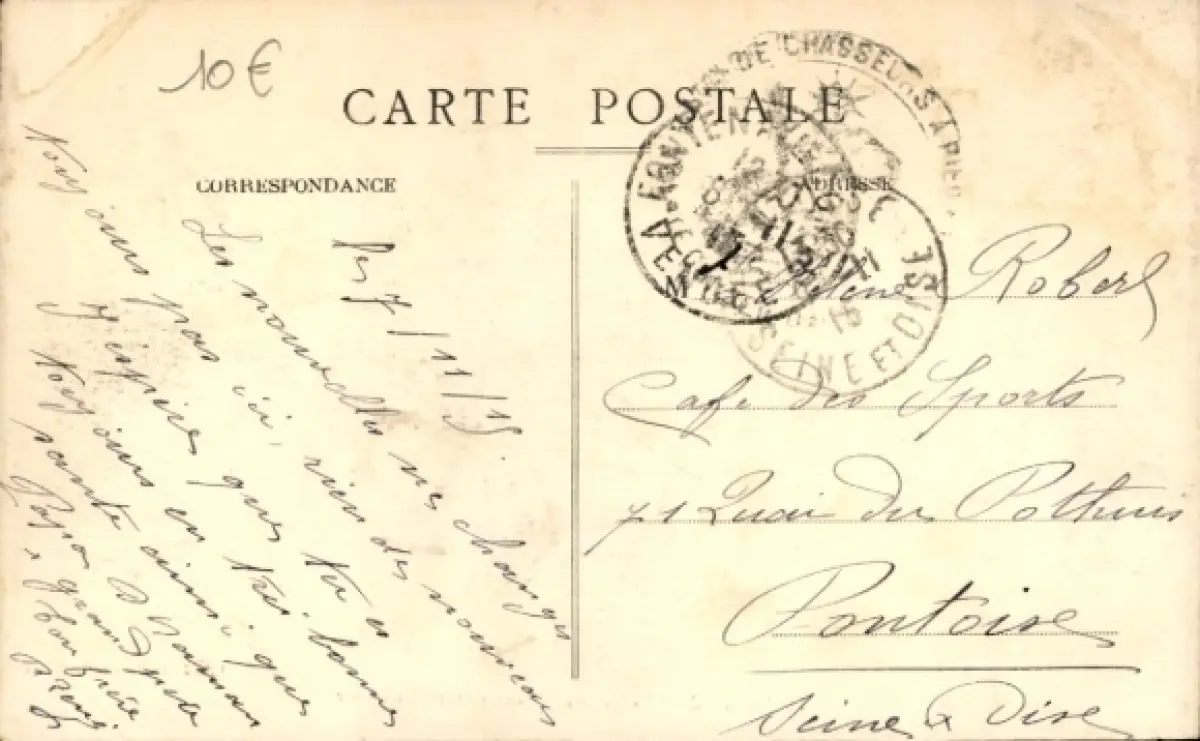 10€
CARTE POSTALE
CORRESPONDANCE
ADRESSE
DE CHASSEURS A PIED
SEINE ET OISE
15
le 7/11/15
Les nouvelles ne changes
pas ici, rien des nouveau
J'espère que tu es
toujours en très bonne
santé ainsi que
Papa Maman
x grand père
ton frère
René
Robert
Café des Sports
71 Quai du Pothuis
Pontoise
Seine & Oise